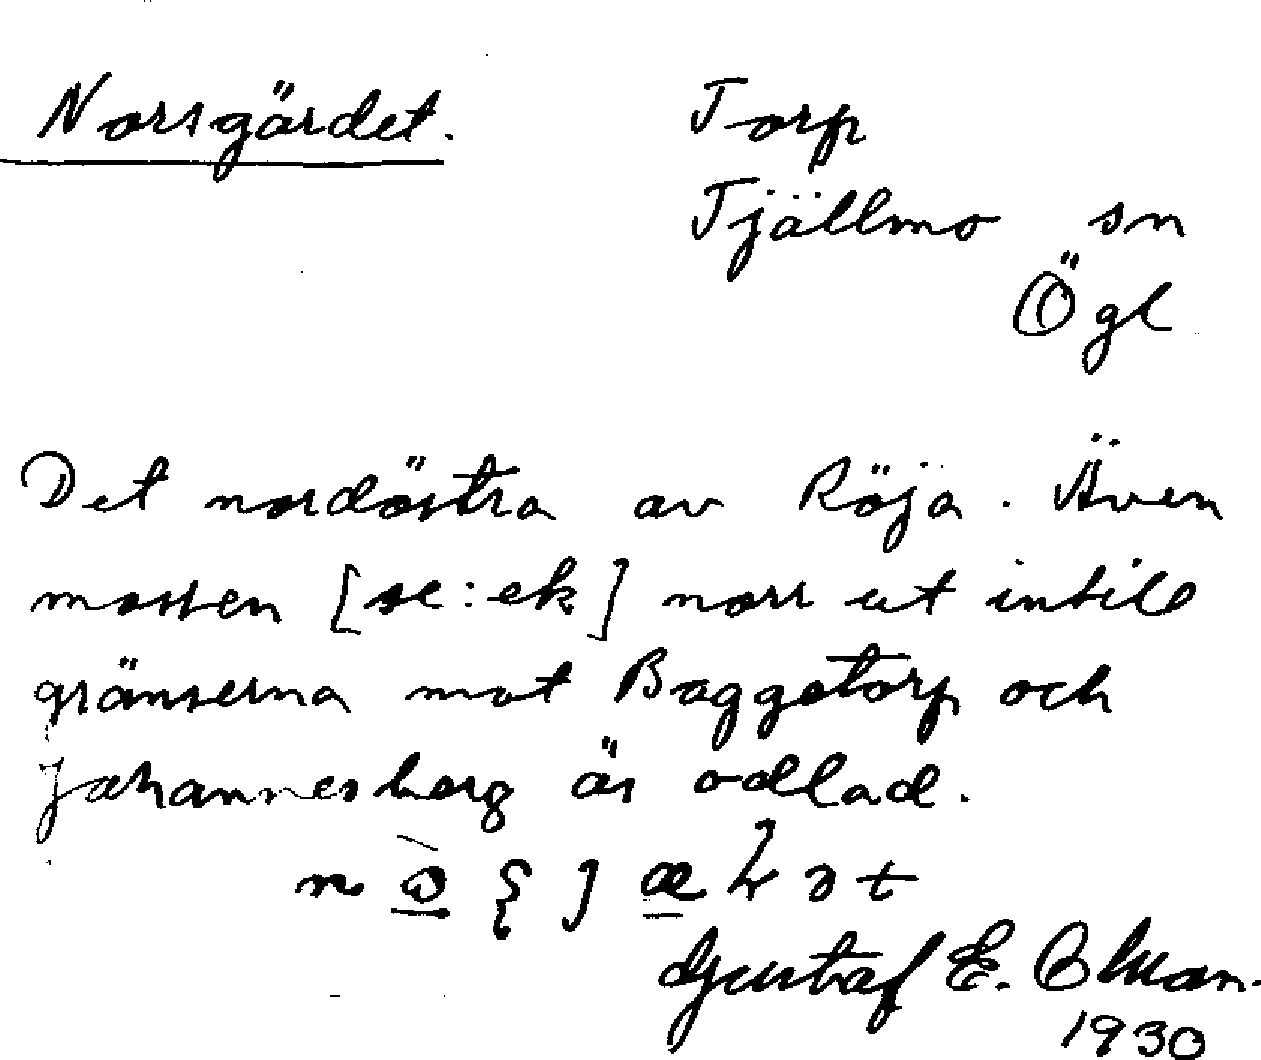 Norrgärdet. Torp
Tjällmo sn
Ögl
Det nordöstra av Röja. Även
mossen [se: ek] norr ut intill
gränserna mot Baggetorp och
Johannesberg är odlad.
Gustaf E.
1930